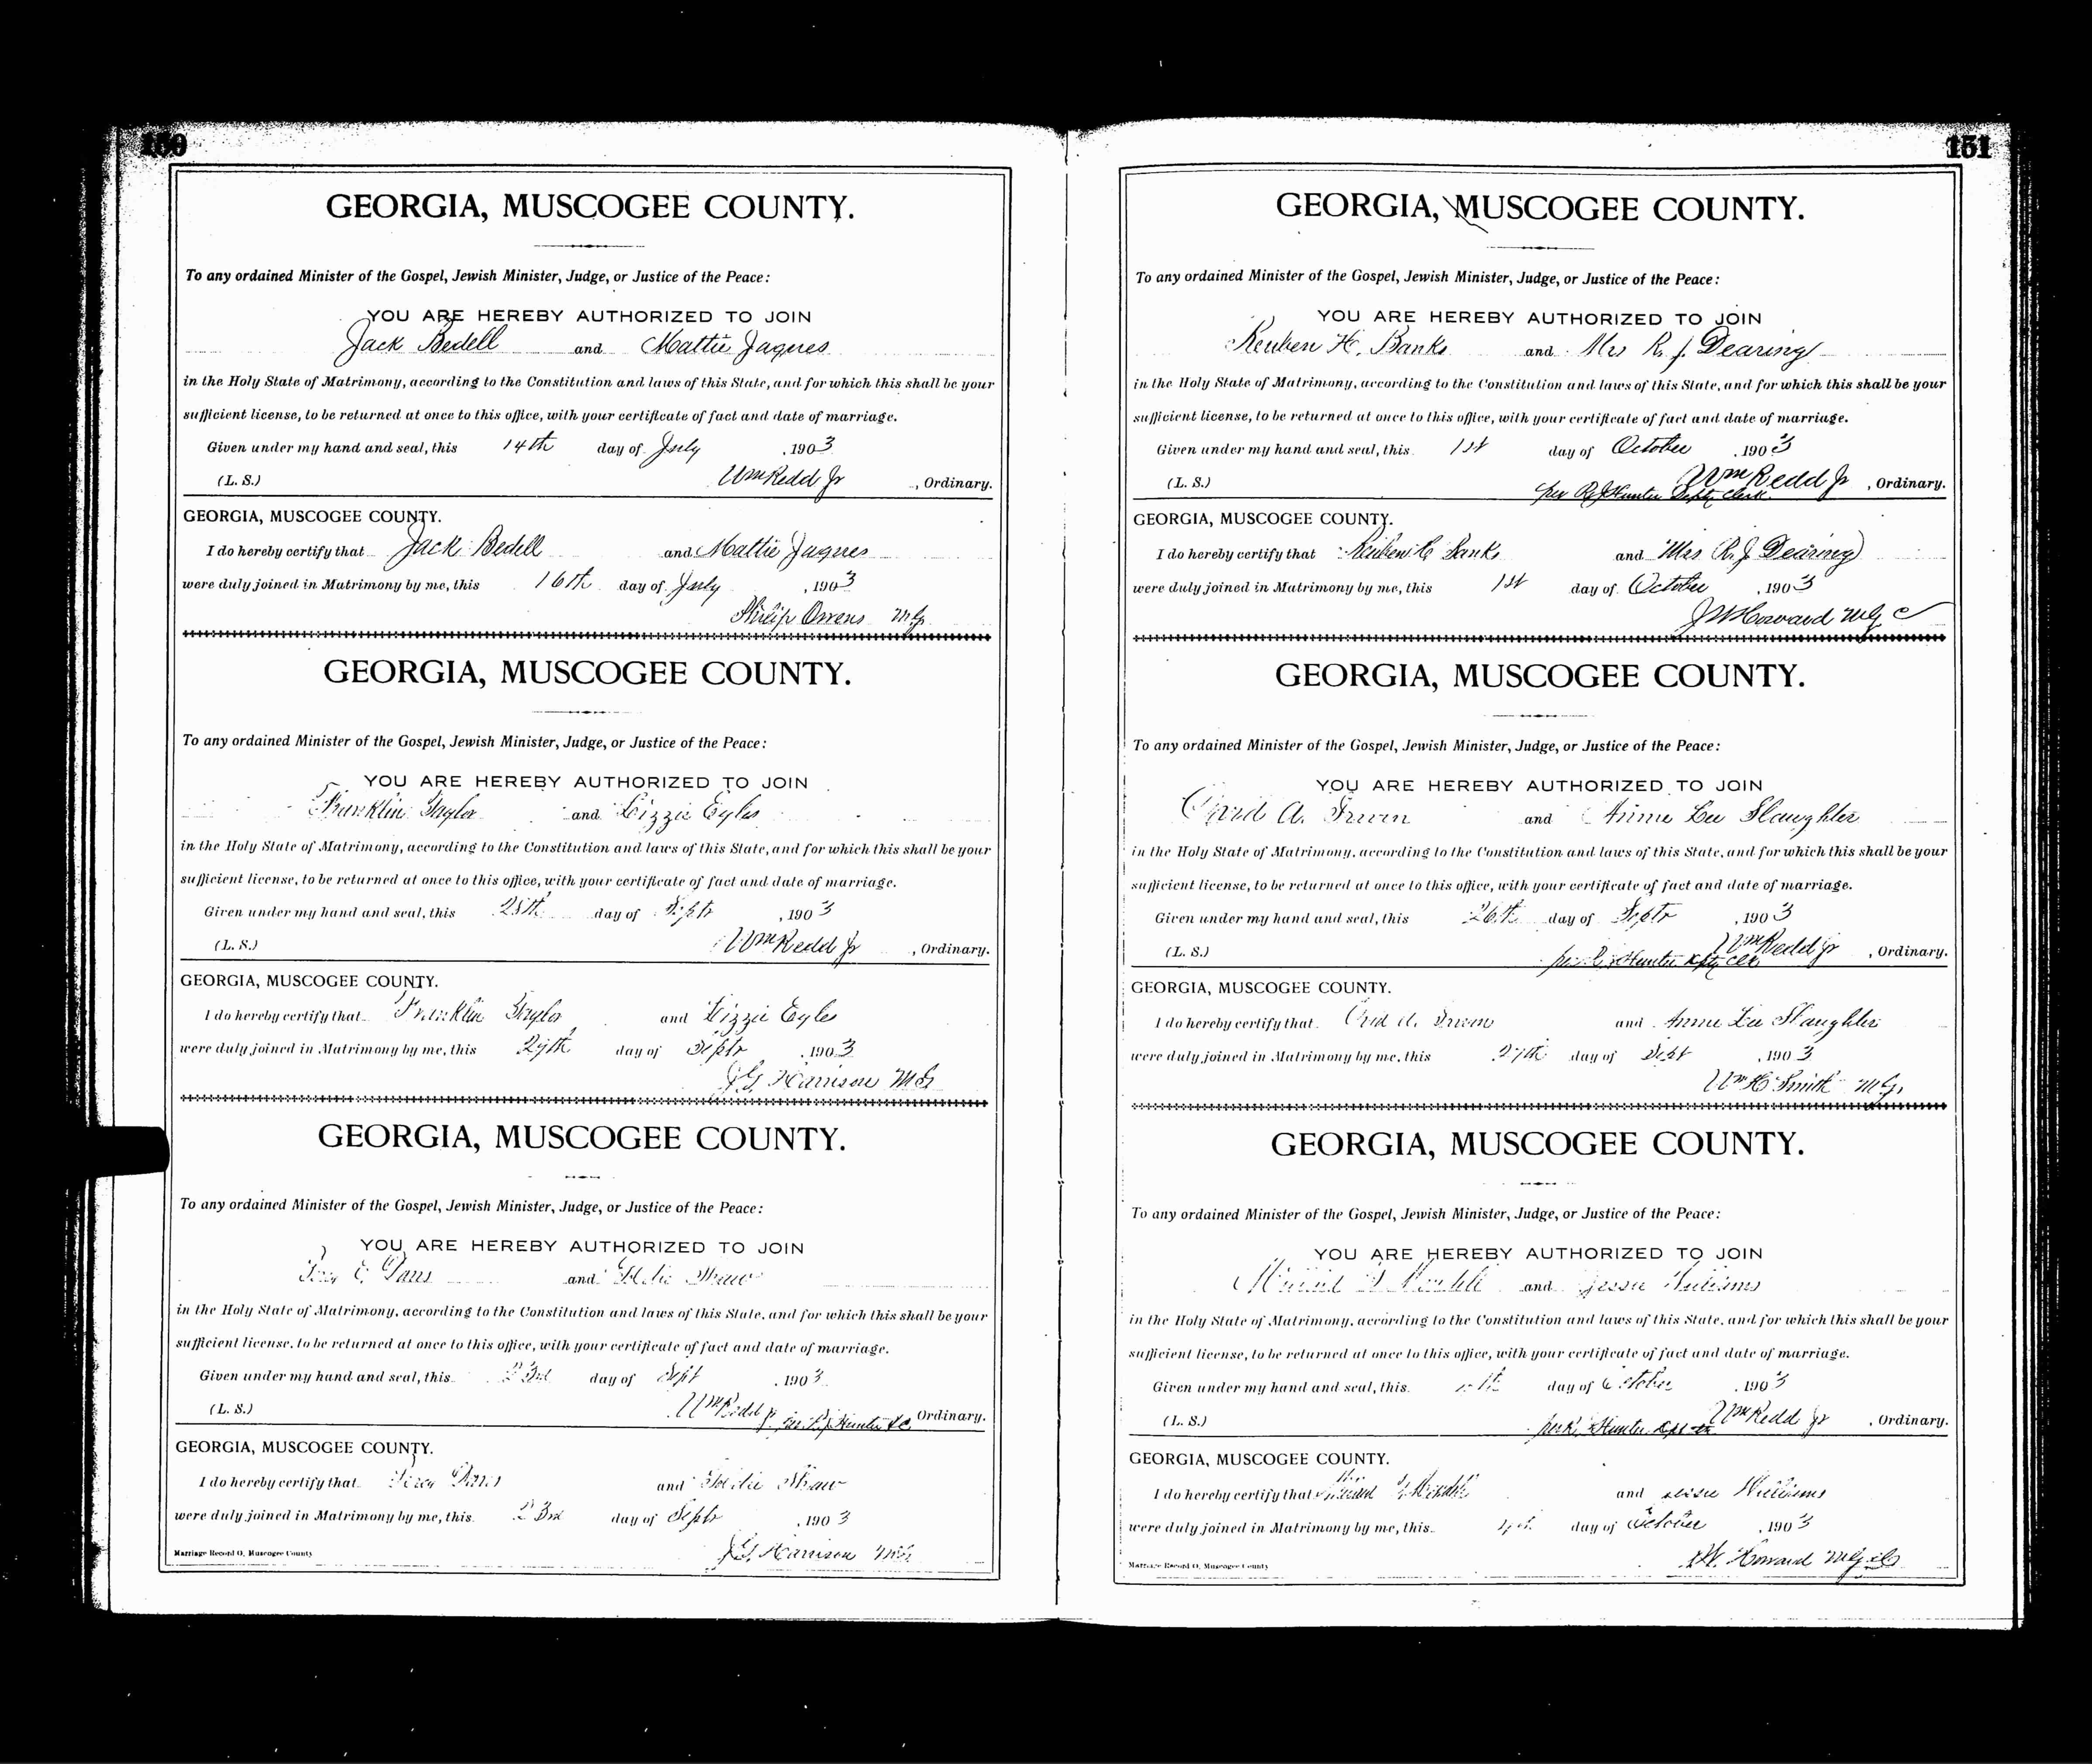 150
GEORGIA, MUSCOGEE COUNTY.
To any ordained Minister of the Gospel, Jewish Minister, Judge, or Justice of the Peace:
YOU ARE HEREBY AUTHORIZED TO JOIN
Jack Bedell and Mattie Jaques
in the Holy State of Matrimony, according to the Constitution and laws of this State, and for which this shall be your
sufficient license, to be returned at once to this office, with your certificate of fact and date of marriage.
Given under my hand and seal, this 14th day of July , 1903
(L. S.) Wm Redd Jr , Ordinary.
GEORGIA, MUSCOGEE COUNTY.
I do hereby certify that Jack Bedell and Mattie Jaques
were duly joined in Matrimony by me, this 16th day of July , 1903
Philip Owens M.G.
GEORGIA, MUSCOGEE COUNTY.
To any ordained Minister of the Gospel, Jewish Minister, Judge, or Justice of the Peace:
YOU ARE HEREBY AUTHORIZED TO JOIN
Franklin Taylor and Lizzie Eyles
in the Holy State of Matrimony, according to the Constitution and laws of this State, and for which this shall be your
sufficient license, to be returned at once to this office, with your certificate of fact and date of marriage.
Given under my hand and seal, this day of Septr , 1903
(L. S.) Wm Redd Jr , Ordinary.
GEORGIA, MUSCOGEE COUNTY.
I do hereby certify that Franklin Taylor and Lizzie Eyles
were duly joined in Matrimony by me, this 29th day of Septr , 1903
Harrison MG
GEORGIA, MUSCOGEE COUNTY.
To any ordained Minister of the Gospel, Jewish Minister, Judge, or Justice of the Peace:
YOU ARE HEREBY AUTHORIZED TO JOIN
and Shaw
in the Holy State of Matrimony, according to the Constitution and laws of this State, and for which this shall be your
sufficient license, to be returned at once to this office, with your certificate of fact and date of marriage.
Given under my hand and seal, this 23rd day of Sept , 1903
(L. S.) Wm Redd Jr per R J Hunter DC Ordinary.
GEORGIA, MUSCOGEE COUNTY.
I do hereby certify that and Shaw
were duly joined in Matrimony by me, this 23rd day of Septr , 1903
Harrison MG
Marriage Record O, Muscogee County
151
GEORGIA, MUSCOGEE COUNTY.
To any ordained Minister of the Gospel, Jewish Minister, Judge, or Justice of the Peace:
YOU ARE HEREBY AUTHORIZED TO JOIN
Reuben H. Banks and Mrs R. J. Dearing
in the Holy State of Matrimony, according to the Constitution and laws of this State, and for which this shall be your
sufficient license, to be returned at once to this office, with your certificate of fact and date of marriage.
Given under my hand and seal, this 1st day of October , 1903
(L. S.) Wm Redd Jr , Ordinary.
per R J Hunter Depty Clerk
GEORGIA, MUSCOGEE COUNTY.
I do hereby certify that Reuben H Banks and Mrs R. J Dearing
were duly joined in Matrimony by me, this 1st day of October , 1903
J W Howard MG C
GEORGIA, MUSCOGEE COUNTY.
To any ordained Minister of the Gospel, Jewish Minister, Judge, or Justice of the Peace:
YOU ARE HEREBY AUTHORIZED TO JOIN
A. Irwin and Annie Lee Slaughter
in the Holy State of Matrimony, according to the Constitution and laws of this State, and for which this shall be your
sufficient license, to be returned at once to this office, with your certificate of fact and date of marriage.
Given under my hand and seal, this 26th day of Septr , 1903
(L. S.) Wm Redd Jr , Ordinary.
per R J Hunter Dpty Clk
GEORGIA, MUSCOGEE COUNTY.
I do hereby certify that A. Irwin and Annie Lee Slaughter
were duly joined in Matrimony by me, this 27th day of Sept , 1903
Wm H Smith M.G.
GEORGIA, MUSCOGEE COUNTY.
To any ordained Minister of the Gospel, Jewish Minister, Judge, or Justice of the Peace:
YOU ARE HEREBY AUTHORIZED TO JOIN
and Jessie Williams
in the Holy State of Matrimony, according to the Constitution and laws of this State, and for which this shall be your
sufficient license, to be returned at once to this office, with your certificate of fact and date of marriage.
Given under my hand and seal, this day of October , 1903
(L. S.) Wm Redd Jr , Ordinary.
Hunter
GEORGIA, MUSCOGEE COUNTY.
I do hereby certify that and Jessie Williams
were duly joined in Matrimony by me, this day of October , 1903
J W. Howard MG
Marriage Record O, Muscogee County